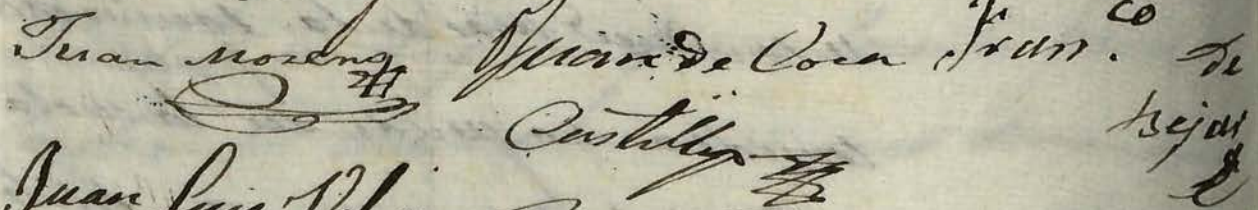 Juan Moreno Juan de Coca Fran.co de
Castillo Bejar
Juan Luis